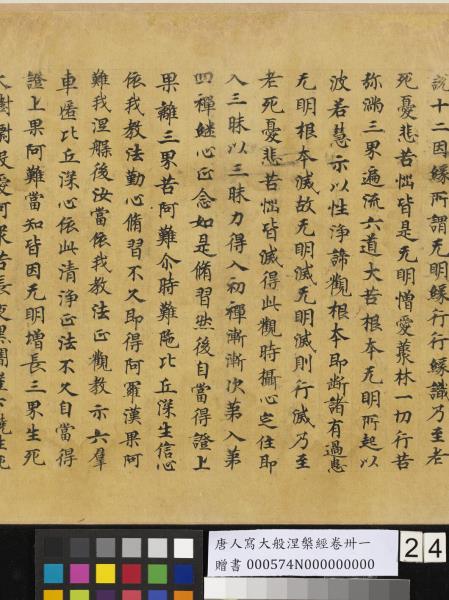 說十二因緣所謂无明緣行行緣識乃至老
死憂悲苦惱皆是无明憎愛叢林一切行苦
弥滿三界遍流六道大苦根本无明所起以
波若慧示以性淨諦觀根本即断諸有過患
无明根本滅故无明滅无明滅則行滅乃至
老死憂悲苦惱皆滅得此觀時攝心定住即
入三昧以三昧力得入初禪漸漸次第入第
四禪繼心正念如是脩習然後自當得證上
果離三界苦阿難尒時難陁比丘深生信心
依我教法勤心脩習不久即得阿羅漢果阿
難我涅槃後汝當依我教法正觀教示六羣
車匿比丘深心依此清淨正法不久自當得
證上果阿難當知皆因无明增長三界生死
大樹
唐人寫大般涅槃經卷卅一
贈書 000574N000000000
24